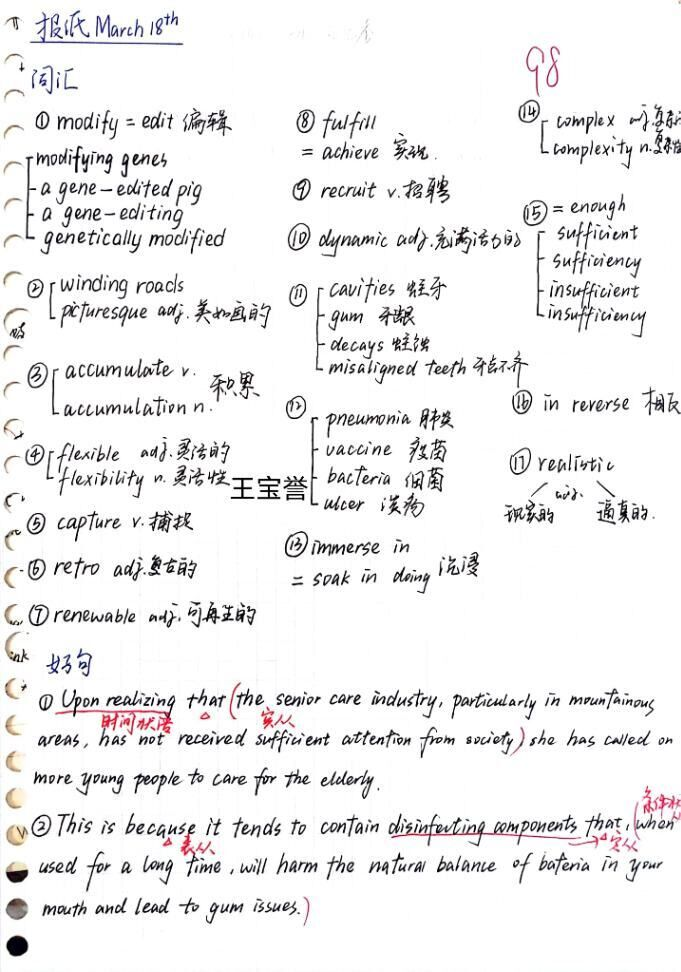 报纸 March 18th
98
词汇
① modify = edit 编辑
modifying genes
a gene-edited pig
a gene-editing
genetically modified
② winding roads
picturesque adj. 美如画的
③ accumulate v.
accumulation n. 积累
④ flexible adj. 灵活的
flexibility n. 灵活性
⑤ capture v. 捕捉
⑥ retro adj. 复古的
⑦ renewable adj. 可再生的
⑧ fulfill
= achieve 实现
⑨ recruit v. 招聘
⑩ dynamic adj. 充满活力的
⑪ cavities 蛀牙
gum 牙龈
decays 蛀蚀
misaligned teeth 牙齿不齐
⑫ pneumonia 肺炎
vaccine 疫苗
bacteria 细菌
ulcer 溃疡
王宝誉
⑬ immerse in
= soak in doing 沉浸
⑭ complex adj. 复杂
complexity n. 复杂性
⑮ = enough
sufficient
sufficiency
insufficient
insufficiency
⑯ in reverse 相反
⑰ realistic
adj.
现实的 逼真的.
好句
① Upon realizing that (the senior care industry, particularly in mountainous
时间状语 宾从
areas, has not received sufficient attention from society) she has called on
more young people to care for the elderly.
② This is because it tends to contain disinfecting components that, (when
表从 定从 条件状从
used for a long time, will harm the natural balance of bateria in your
mouth and lead to gum issues.)